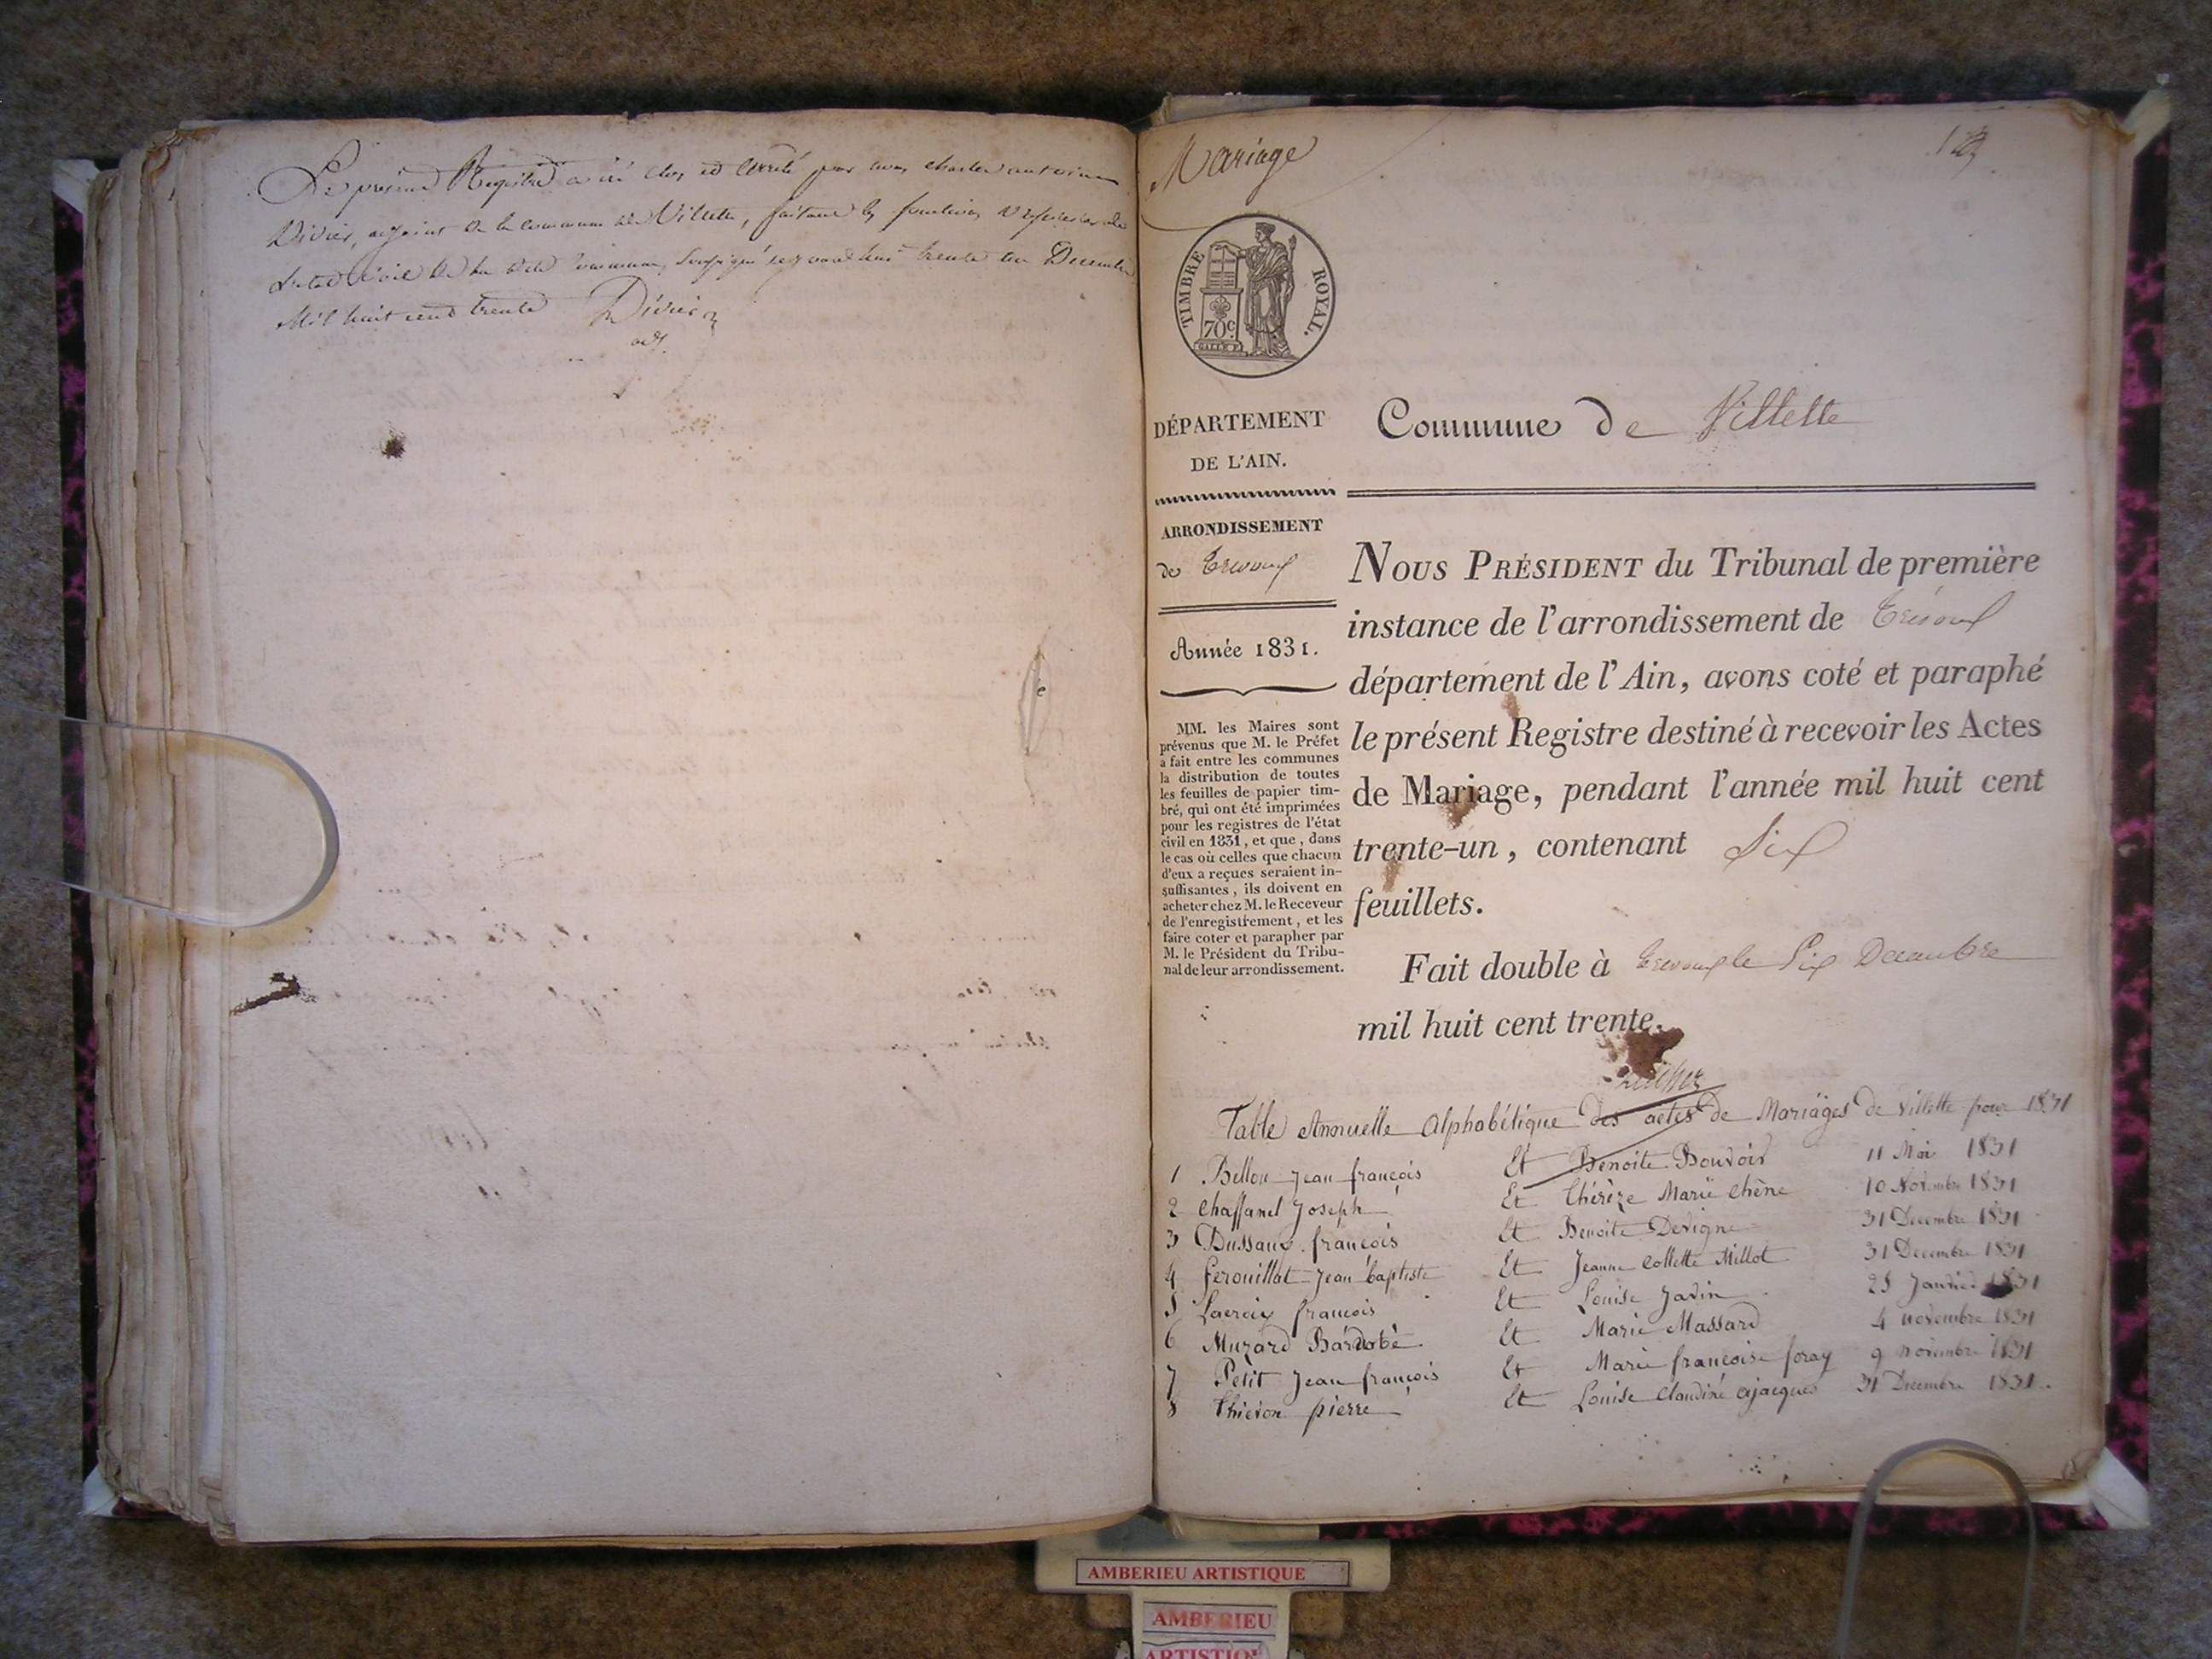 Le présent Registre a été clos et arrêté par nous charles antoine
Divier, adjoint de la commune de Villette, faisant les fonctions d'officier de
L'etat civil de la dite commune, soussigné trente un Decembre
Mil huit cent trente Divier
adj
Mariage
TIMBRE ROYAL.
70 c
GALLE F.
DÉPARTEMENT
DE L'AIN.
Commune de Villette
ARRONDISSEMENT
de Trevoux
Année 1831.
MM. les Maires sont
prévenus que M. le Préfet
a fait entre les communes
la distribution de toutes
les feuilles de papier tim-
bré, qui ont été imprimées
pour les registres de l'état
civil en 1831, et que, dans
le cas où celles que chacun
d'eux a reçues seraient in-
suffisantes, ils doivent en
acheter chez M. le Receveur
de l'enregistrement, et les
faire coter et parapher par
M. le Président du Tribu-
nal de leur arrondissement.
NOUS PRÉSIDENT du Tribunal de première
instance de l'arrondissement de Trévoux
département de l'Ain, avons coté et paraphé
le présent Registre destiné à recevoir les Actes
de Mariage, pendant l'année mil huit cent
trente-un, contenant Six
feuillets.
Fait double à Trevoux le Six Decembre
mil huit cent trente.
Table Annuelle Alphabétique des actes de Mariages de Villette pour 1831
1 Bellon Jean françois Et Benoite Bouvoir 11 Mai 1831
2 Chaffanel Joseph Et Thérèze Marie Chêne 10 Novembre 1831
3 Dussaux françois Et Benoite Devigne 31 Decembre 1831
4 ferouillat Jean baptiste Et Jeanne Collette Millot 31 Decembre 1831
5 Lacroix francois Et Louise Javin 25 Janvier 1831
6 Muzard Barnabé Et Marie Massard 4 novembre 1831
7 Petit Jean françois Et Marie francoise foray 9 novembre 1831
8 Thievon pierre Et Louise Claudine cajacques 31 Decembre 1831.
AMBERIEU ARTISTIQUE
AMBERIEU